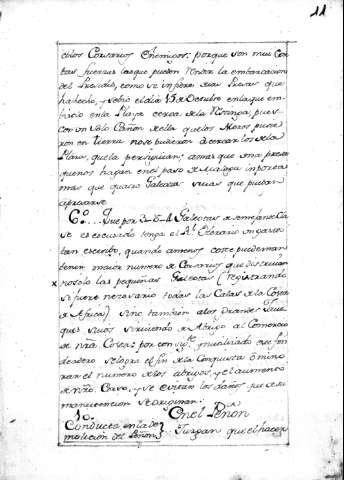 11
de los Corsarios Enemigos: porque son mui Cor
tas fuerzas las que pueden rendir la embarcacion
del Presidio, como se infiere de las Presas que
ha hecho, y sobre el dia 15 de Octubre en la que em
bistio en la Playa cerca de la
con un Solo Cañon de ella que los Moros pusie
ron en tierra no se pudieron acercar los de la
Plaza, que la perseguian; a mas que una presa
que nos hagan en el paso de Malaga importa
mas que quatro Galeotas suyas que puedan
apresarse.
6º... Que por 2 o 3 Galeotas de semejante Cla
se es escusado tenga el Rl. Erario un gasto
tan escesivo, quando a menos coste puede man
tener maior numero de Corsarios que destruian
no solo las pequeñas Galeotas (registrando
si fuere necesario todas las Calas de la Costa
de Africa) sino tambien a los grandes
ques suyos sirviendo de Abrigo al Comercio
de nra. Costa: por con sigte. inutilizado ese fon
deadero se logra el fin de la Conquista o mino
rar el numero de los abrigos, y el aumento
de nro. Corso, y se evitan los daños que de su
manutencion se originan.
Conduce, en la de
molicion del Peñon
On el Peñon
Juzgan que el hacer